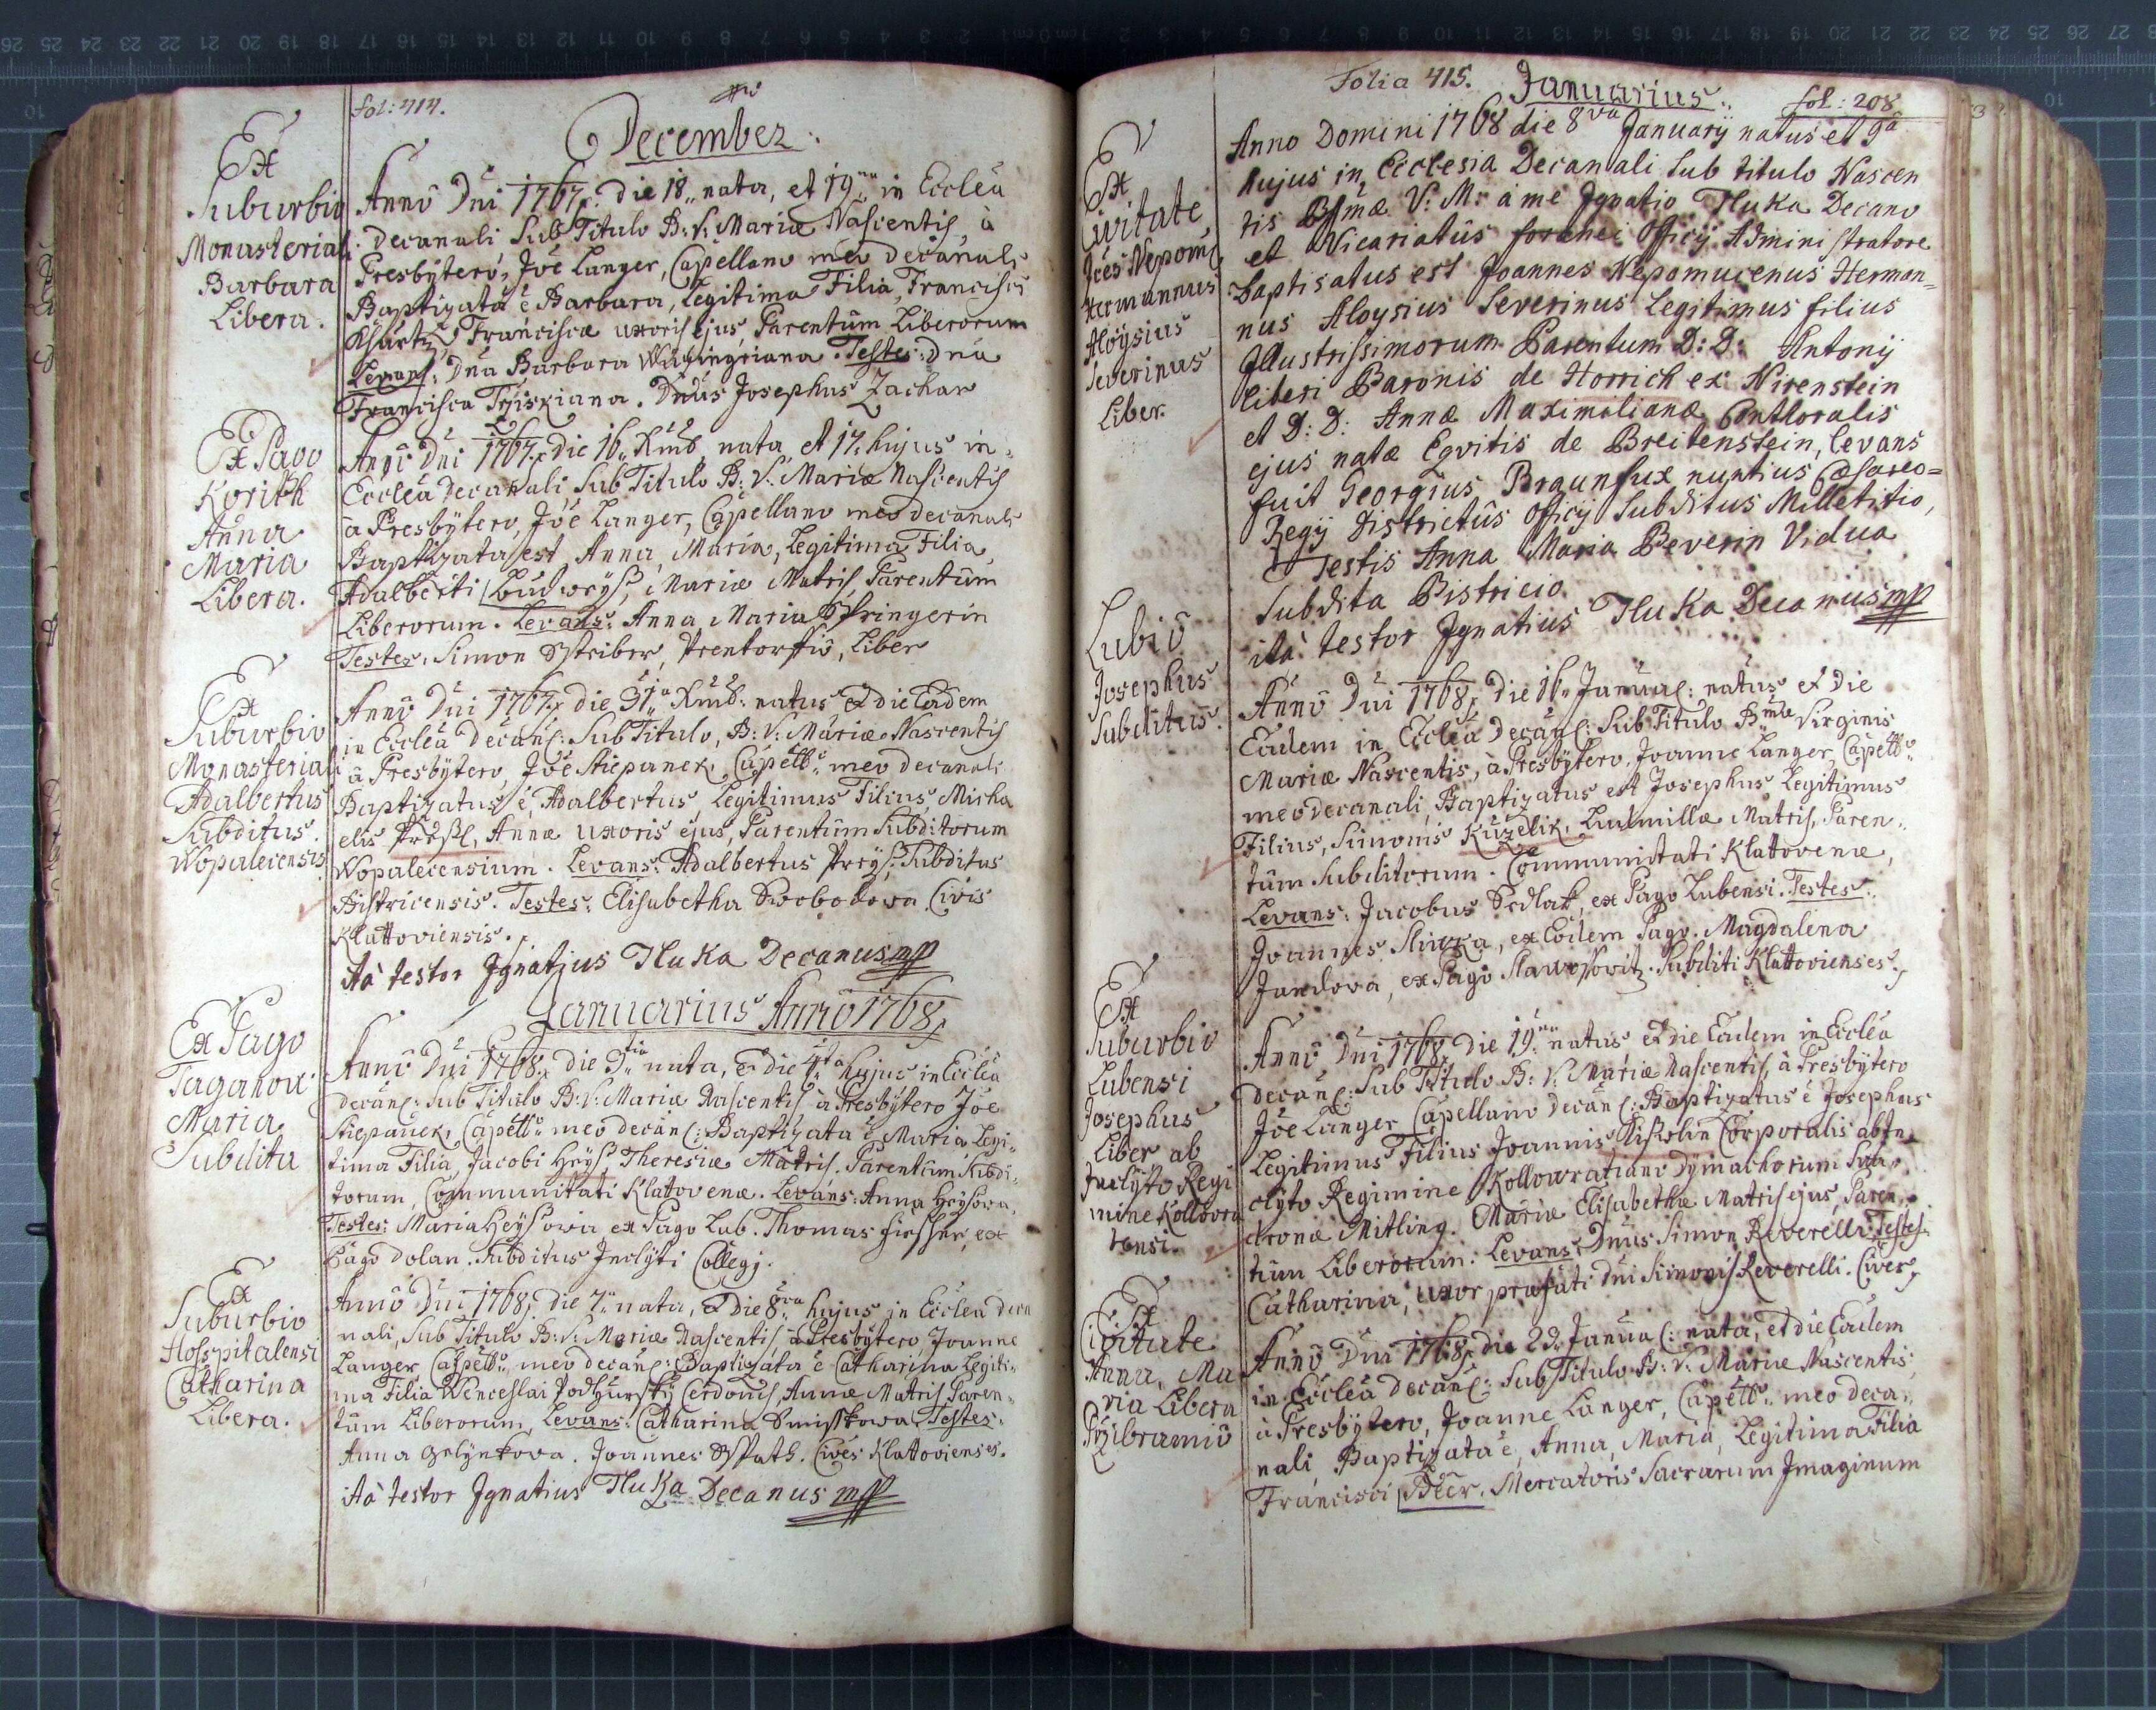 fol: 414.
December.
Ex
Suburbio
Monasteriali
Barbara
Libera.
Anno Dni 1767. die 18 nata, et 19na in Ecclea
decanali Sub Titulo B: V: Mariæ Nascentis, à
Presbÿtero, Joe Langer, Capellano meo decanali
Baptizata ē Barbara, Legitima Filia, Francisci
Francisca uxoris ejus, Parentum Liberorum
Levans: Dna Barbara. Testes: Dna
Francisca. Dnus Josephus Zachar
Ex Pago
Koritk
Anna
Maria
Libera.
Anno Dni 1767. die 16 Xmb. nata, et 17. hujus in
Ecclea decanali, Sub Titulo B: V: Mariæ Nascentis
à Presbÿtero, Joe Langer, Capellano meo decanali
Baptizata est Anna, Maria, Legitima Filia,
Adalberti, Mariæ Matris, Parentum
Liberorum. Levans: Anna Maria Springerin
Testes: Simon Streiber, Liber
Ex
Suburbio
Monasteriali
Adalbertus
Subditus.
Wopalecensis
Anno Dni 1767. die 31a Xmb: natus et die Eadem
in Ecclea decan: Sub Titulo, B: V: Mariæ Nascentis
à Presbÿtero, Joe Stiepanek, Capello meo decanali
Baptizatus ē, Adalbertus, Legitimus Filius, Micha
elis, Annæ uxoris ejus, Parentum Subditorum
Wopalecensium. Levans: Adalbertus Preÿs, Subditus
Bistricensis. Testes: Elisabetha Swobodowa Civis
Klattoviensis.
ità testor Jgnatius Hluka Decanus mp
Januarius Anno 1768
Ex Pago
Taganow
Maria
Subdita
Anno Dni 1768. die 3tia nata, et die 4ta hujus in Ecclea
decan: Sub Titulo B: V: Mariæ Nascentis à Presbÿtero Joe
Stiepanek, Capello meo decan: Baptizata ē Maria, Legi-
tima Filia, Jacobi Heÿs, Theresiæ Matris. Parentum Subdi-
torum, Communitati Klatovenæ. Levans: Anna Heÿsowa.
Testes: Maria Heÿsowa ex Pago Lub. Thomas Fiesher, ex
Pago Dolan. Subditus Jnclÿti Collegj.
Ex
Suburbio
Hospitalensi
Catharina
Libera.
Anno Dni 1768. die 7 nata, et die 8va hujus in Ecclea deca
nali, Sub Titulo B: V: Mariæ Nascentis, à Presbÿtero, Joanne
Langer, Capello meo decan: Baptizata ē Catharina Legiti-
ma Filia Wenceslai Podhurskÿ Cerdonis, Annæ Matris Paren-
tum Liberorum, Levans: Catharina Smisskowa Testes:
Anna Gelÿnkova. Joannes Spath. Cives Klattovienses.
ità testor Jgnatius Hluka Decanus mp
Folia 415.
Januarius.
fol: 208
Ex
Civitate
Joes Nepom
Hermannus
Aloÿsius
Severinus
Liber.
Anno Domini 1768 die 8va Januarij natus et 9a
hujus in Ecclesia Decanali Sub titulo Nascen
tis Bssmæ V: M: à me Jgnatio Hluka Decano
et Vicariatûs foranei officij Administratore
baptisatus est Joannes Nepomucenus Herman-
nus Aloysius Severinus Legitimus filius
Jllustrissimorum Parentum D: D: Antonij
liberi Baronis de Horrich ex Nirenstein
et D: D: Annæ Maximilianæ Conthoralis
ejus natæ Eqvitis de Breitenstein, levans
fuit Georgius Braunfux nuntius Cæsareo=
Regij Districtûs officij Subditus Milletitio,
Testis Anna Maria Beverin Vidua
Subdita Bistricio.
ità testor Jgnatius Hluka Decanus mp
Lubiō
Josephus
Subditus.
Anno Dni 1768. die 16 Januar: natus et die
Eadem in Ecclea decan: Sub Titulo Bmæ Virginis
Mariæ Nascentis, à Presbÿtero, Joanne Langer, Capello
meo decanali, Baptizatus est Josephus, Legitimus
Filius, Simonis Kuzelik, Ludmillæ Matris, Paren-
tum Subditorum. Communitati Klattovenæ,
Levans: Jacobus Sedlak, ex Pago Lubensi. Testes:
Joannes Sliwka, ex Eodem Pago. Magdalena
Jandova, ex Pago Slawossowitz. Subditi Klattovienses.
Ex
Suburbio
Lubensi
Josephus
Liber ab
Jnclÿto Regi
mine Kollovra
tensi.
Anno Dni 1768. die 19na natus et die Eadem in Ecclea
decan: Sub Titulo B: V: Mariæ Nascentis, à Presbÿtero
Joe Langer Capellano decan: Baptizatus ē Josephus
Legitimus Filius Joannis Corporalis ab Jn
clÿto Regimine Kollowratiano Dÿmachorum
Mitling. Mariæ Elisabethæ Matris ejus, Paren-
tum Liberorum: Levans: Dnus Simon Reverelli. Testes
Catharina, uxor præfati Dni Simonis Reverelli. Cives.
Ex
Civitate
Anna, Ma
ria Libera
Przibramiō
Anno Dni 1768. die Janua: nata, et die Eadem
in Ecclea decan: Sub Titulo B: V: Mariæ Nascentis,
à Presbÿtero, Joanne Langer, Capello meo deca-
nali, Baptizata ē, Anna, Maria, Legitima Filia
Francisci. Mercatoris Sacrarum Jmaginum